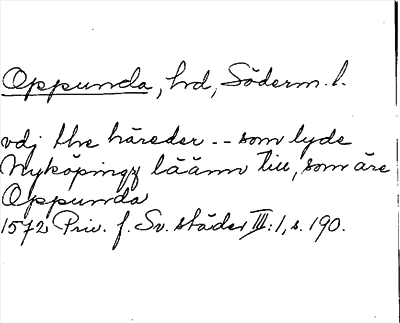 Oppunda, hd, Söderm. l.
vdj the häreder -- som lyde
Nyköpingz läänn till, som äre
Oppunda
1572 Priv. f. Sv. städer III:1, s. 190.